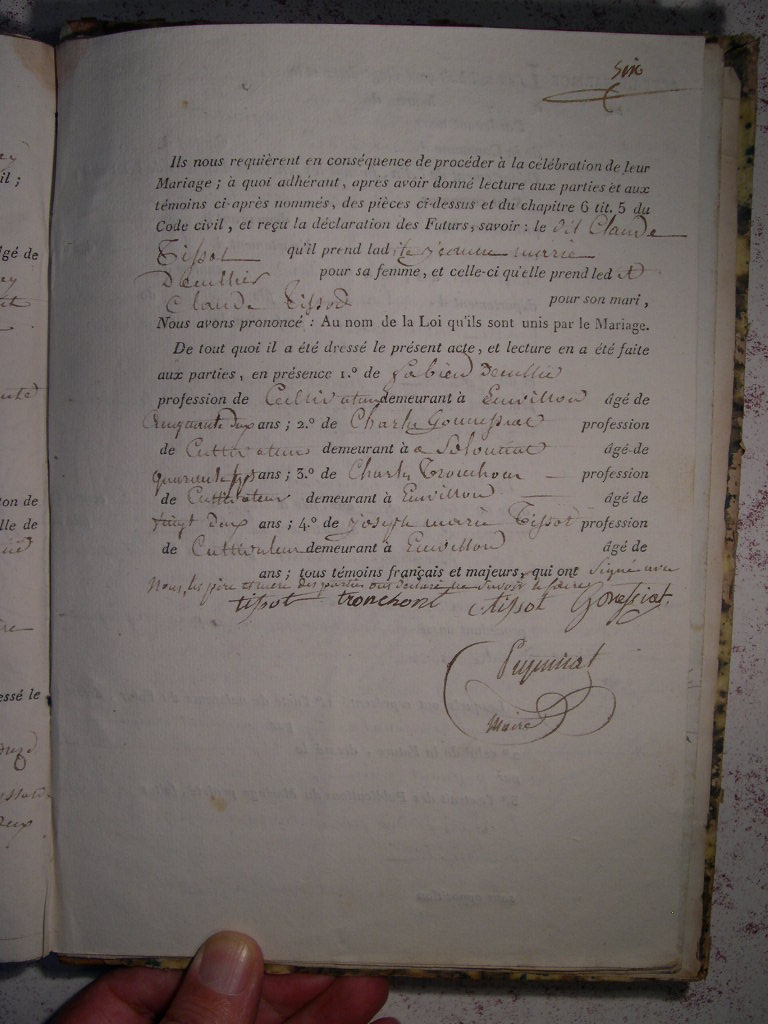 Six
Ils nous requièrent en conséquence de procéder à la célébration de leur
Mariage ; à quoi adhérant, après avoir donné lecture aux parties et aux
témoins ci-après nommés, des pièces ci-dessus et du chapitre 6 tit. 5 du
Code civil, et reçu la déclaration des Futurs, savoir : le dit Claude
Tissot qu'il prend ladite jeanne marie
pour sa femme, et celle-ci qu'elle prend led it
Claude Tissot pour son mari,
Nous avons prononcé : Au nom de la Loi qu'ils sont unis par le Mariage.
De tout quoi il a été dressé le présent acte, et lecture en a été faite
aux parties, en présence 1.º de fabien
profession de Cultivateur demeurant à âgé de
Cinquante deux ans ; 2.º de Charle Gonnessiat profession
de Cultivateur demeurant à âgé de
quarante ans ; 3.º de Charle Tronchon profession
de Cultivateur demeurant à âgé de
vingt deux ans ; 4.º de joseph marie Tissot profession
de Cultivateur demeurant à âgé de
ans ; tous témoins français et majeurs, qui ont Signé avec
Nous, les père et mere des parties ont déclaré ne savoir le faire
tissot tronchont tissot Gonessiat
Maire
il ;
gé de
ton de
lle de
essé le